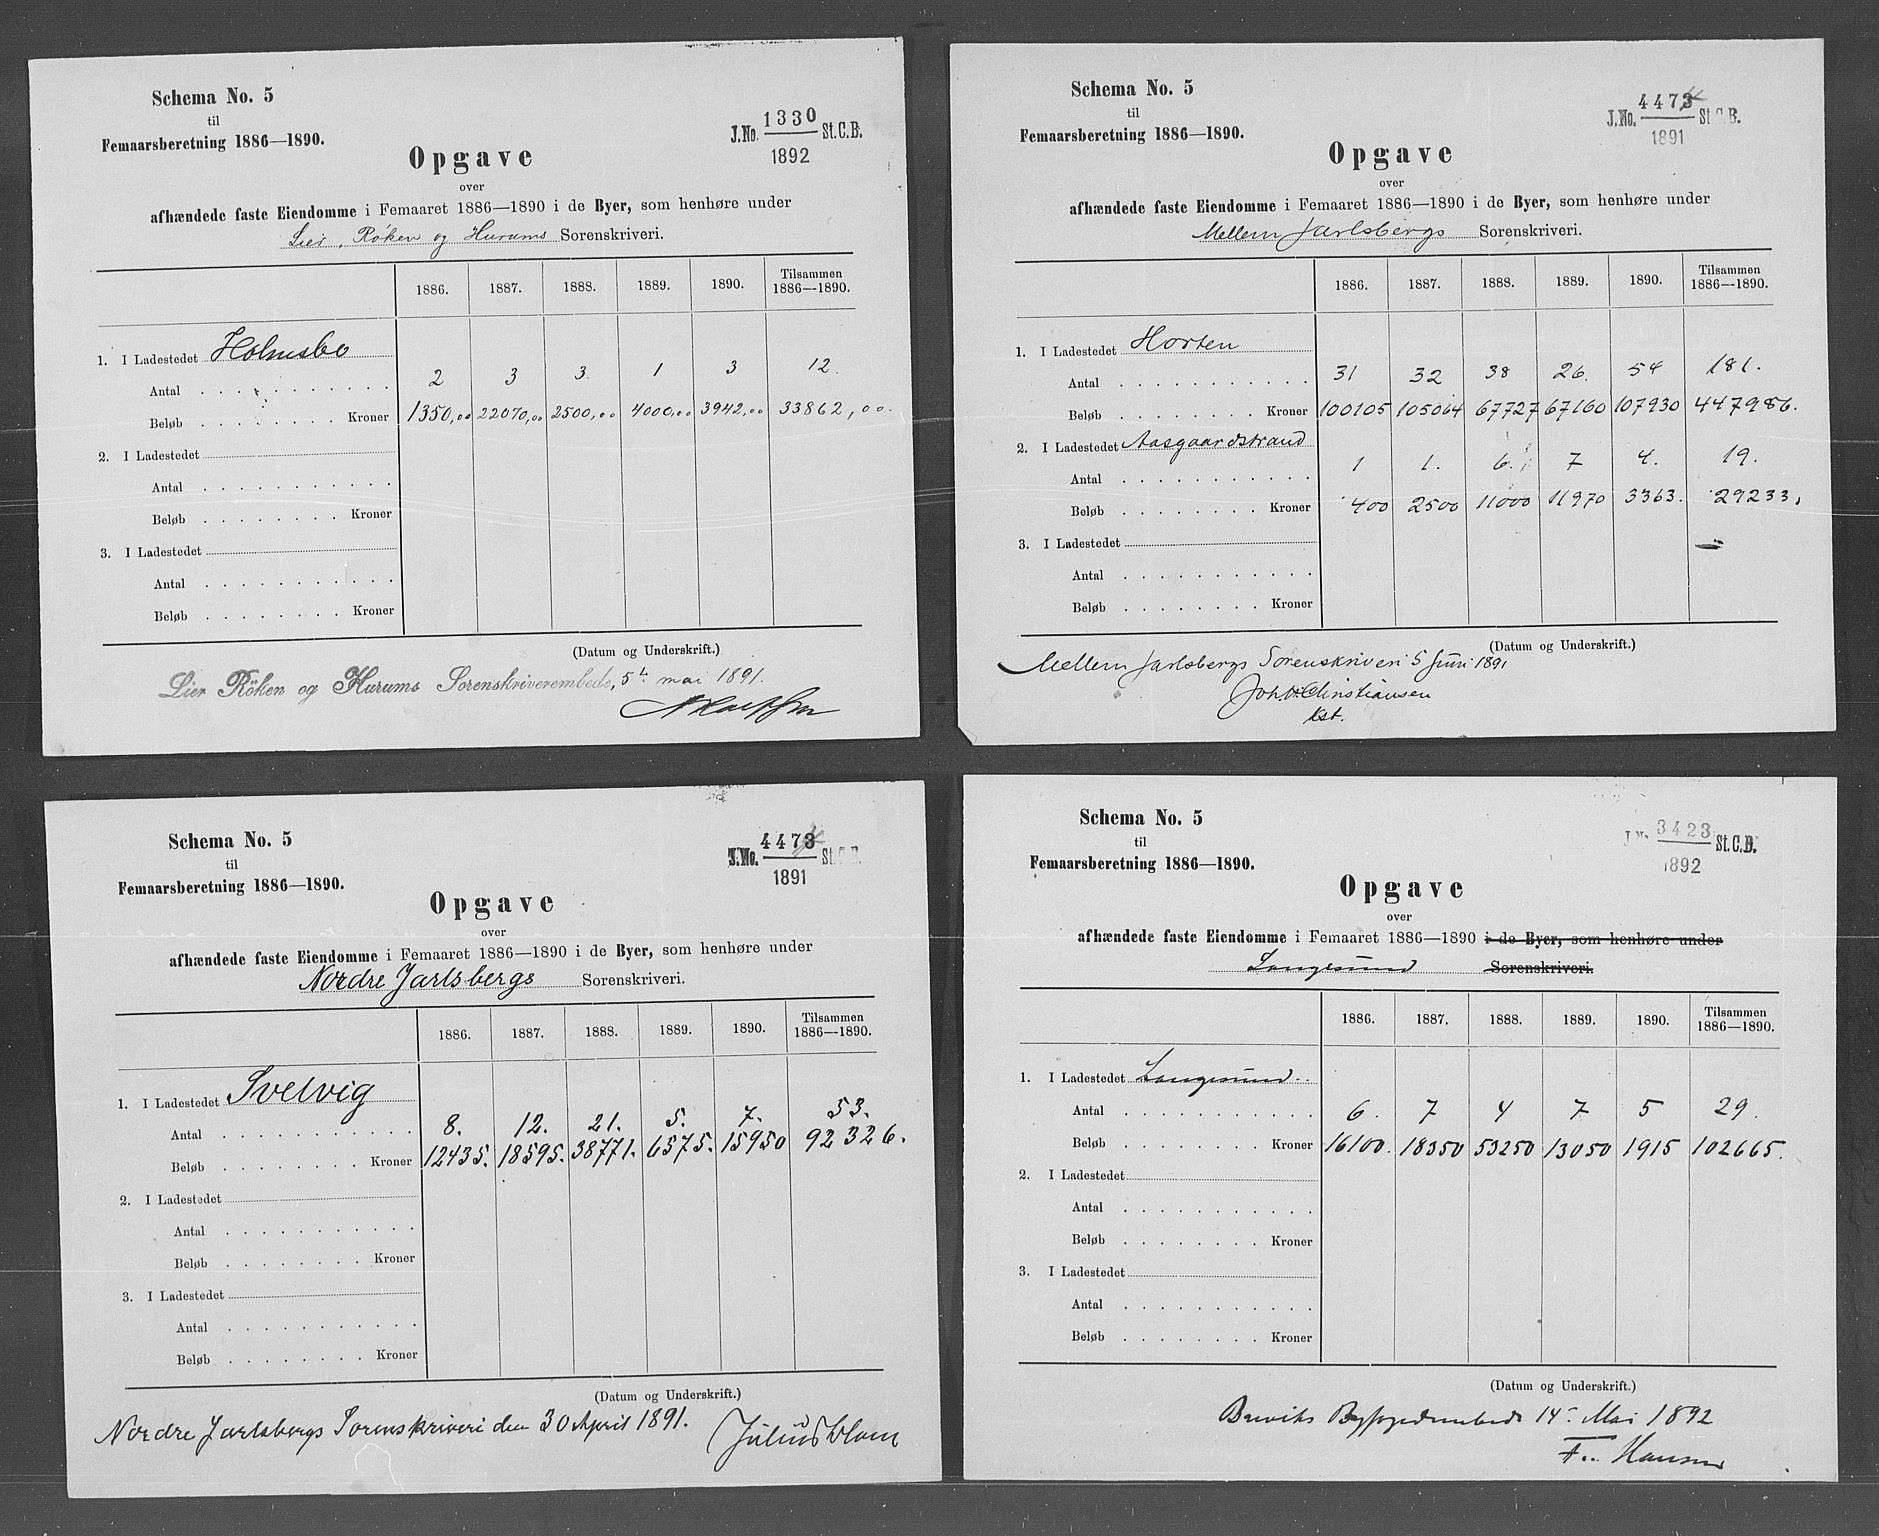 Schema No. 5
til
Femaarsberetning 1886—1890.
J.No. 1330 St.C.B.
1892
Opgave
over
afhændede faste Eiendomme i Femaaret 1886—1890 i de Byer, som henhøre under
Lier, Røken og Hurums Sorenskriveri.
1886. 1887. 1888. 1889. 1890. Tilsammen 1886—1890.
1. I Ladestedet Holmsbo
Antal 2 3 3 1 3 12.
Beløb Kroner 1350,00 22070,00 2500,00 4000,00 3942,00 33862,00.
2. I Ladestedet
Antal
Beløb Kroner
3. I Ladestedet
Antal
Beløb Kroner
(Datum og Underskrift.)
Lier Röken og Hurums Sorenskriverembede, 5te mai 1891.
Schema No. 5
til
Femaarsberetning 1886—1890.
J.No. 4473 St.C.B.
1891
Opgave
over
afhændede faste Eiendomme i Femaaret 1886—1890 i de Byer, som henhøre under
Mellem Jarlsbergs Sorenskriveri.
1886. 1887. 1888. 1889. 1890. Tilsammen 1886—1890.
1. I Ladestedet Horten
Antal 31 32 38 26. 54 181.
Beløb Kroner 100105 105064 67727 67160 107930 447986.
2. I Ladestedet Aasgaardstrand
Antal 1 1. 6. 7 4. 19.
Beløb Kroner 400 2500 11000 11970 3363. 29233.
3. I Ladestedet
Antal
Beløb Kroner
(Datum og Underskrift.)
Mellem Jarlsbergs Sorenskriveri 5 Juni 1891
Joh. Christiansen
kst.
Schema No. 5
til
Femaarsberetning 1886—1890.
J.No. 4473 St.C.B.
1891
Opgave
over
afhændede faste Eiendomme i Femaaret 1886—1890 i de Byer, som henhøre under
Nordre Jarlsbergs Sorenskriveri.
1886. 1887. 1888. 1889. 1890. Tilsammen 1886—1890.
1. I Ladestedet Svelvig
Antal 8. 12. 21. 5. 7. 53.
Beløb Kroner 12435. 18595. 38771. 6575. 15950 92326.
2. I Ladestedet
Antal
Beløb Kroner
3. I Ladestedet
Antal
Beløb Kroner
(Datum og Underskrift.)
Nordre Jarlsbergs Sorenskriveri den 30 April 1891.
Julius Blom
Schema No. 5
til
Femaarsberetning 1886—1890.
J.No. 3423 St.C.B.
1892
Opgave
over
afhændede faste Eiendomme i Femaaret 1886—1890 i de Byer, som henhøre under
Langesund Sorenskriveri.
1886. 1887. 1888. 1889. 1890. Tilsammen 1886—1890.
1. I Ladestedet Langesund
Antal 6. 7 4 7 5 29.
Beløb Kroner 16100. 18350 53250 13050 1915 102665.
2. I Ladestedet
Antal
Beløb Kroner
3. I Ladestedet
Antal
Beløb Kroner
(Datum og Underskrift.)
Breviks Byfogedembede 14 Mai 1892
F. Hansen